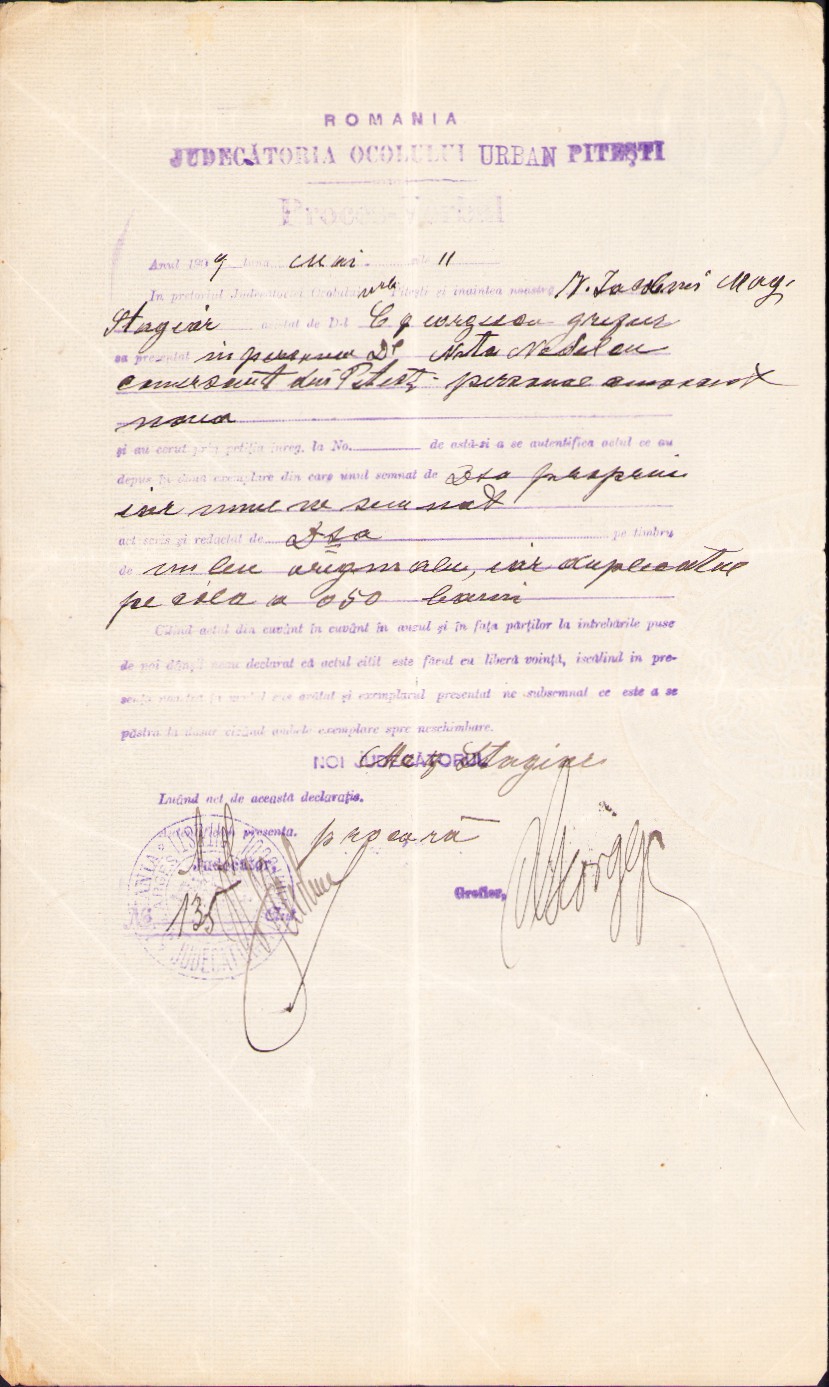 ROMANIA
JUDECĂTORIA OCOLULUI URBAN PITEŞTI
Proces-Verbal
Anul 1909 luna Mai 11
In pretoriul Judecătoriei Ocolului urb Piteşti şi înaintea noastră N. Mag.
Stagiar asistat de D-l C Georgescu grefier
sa presentat in persoana Dl
comersant din Piteşti persoane
noua
şi au cerut prin petiţia înreg. la No. de astă-zi a se autentifica actul ce au
depus în două exemplare din care unul semnat de Dsa propriu
iar unul ne semnat
act scris şi redactat de Dsa pe timbru
de un leu originalu, iar duplicatul
pe cóla a 050 bani
Citind actul din cuvânt în cuvânt în auzul şi în faţa părţilor la intrebările puse
de noi dânşii neau declarat că actul citit este făcut cu liberă voinţă, iscălind in pre-
senţa noastră şi exemplarul presentat ne subsemnat ce este a se
păstra la dosar vizând ambele exemplare spre neschimbare.
NOI JUDECĂTORUL Mag Stagiar
Luând act de această declaraţie.
presenta. procură
Judecător,
Grefier,
135